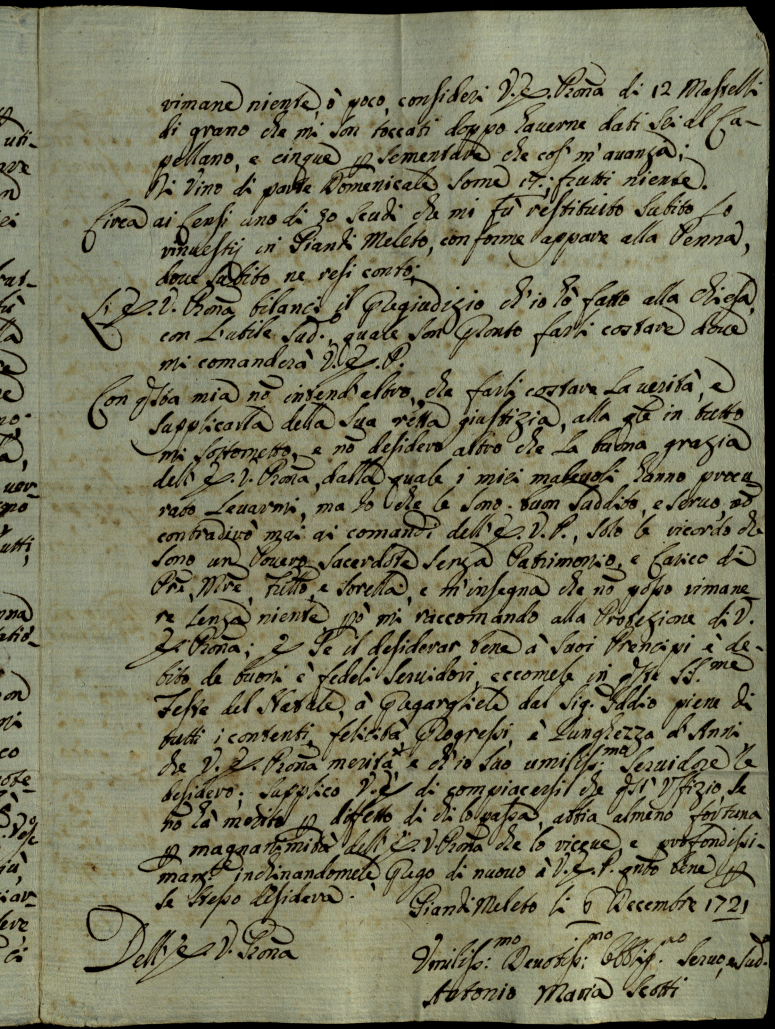 rimane niente, ò poco, consideri V. E. Prona di 12 Mastelli
di grano che mi son toccati doppo haverne dati sei al Ca-
pellano, e cinque p sementare che così m'avanza;
Di Vino di parte Domenicale some; frutti niente.
Circa ai Censi uno di 30 Scudi che mi fù restituito subito lo
rinvestij in Piandi Meleto, conforme appare alla Penna,
dove subito ne resi conto;
L'E. V. Prona bilanci il Pregiudizio ch'io hò fatto alla chiesa,
con l'utile Sud., quale son Pronto farli costare dove
mi comanderà V. E. P.
Con qsta mia nō intendo altro, che farli costare la verità, e
supplicarla della sua retta giustizia, alla qle in tutto
mi sottometto, e nō desidero altro che la buona grazia
dell'E. V. Prona, dalla quale i miei malevoli hanno procu
rato levarmi, ma Io che le sono buon suddito, e servo, nō
contradirò mai ai comandi dell'E. V. P., solo le ricordo che
sono un Povero Sacerdote senza Patrimonio, e Carico di
Pre, Mre, Frtto, e sorella, e m'insegna che nō posso rimane
re senza niente pò mi raccomando alla Protezione di V.
E. Prona; E Se il desiderar bene à suoi Prencipi è de-
bito de buoni è fedeli servidori, eccomele in qste SS.me
Feste del Natale, à Pregargliele dal Sig. Iddio piene di
tutti i contenti, felicità Progressi, è Lunghezza d'Anni
che V. E. Prona merita, e ch'io suo umiliss:mo Servidore le
desidero; supplico V. E. di compiacersi che qst'Uffizio, se
nō hà merito p diffetto di chi lo passa, abbia almeno fortuna
p magnanimità dell'E. V. Prona che lo riceve, e profondissi-
mamte inchinandomele Prego di nuovo à V. E. P. qnto bene
se stesso desidera. Piandi Meleto li 6 Decembre 1721
Dell'E. V. Prona
Umiliss:mo Devotiss:mo Obblig.mo Servo, e Sud.
Antonio Maria Scotti